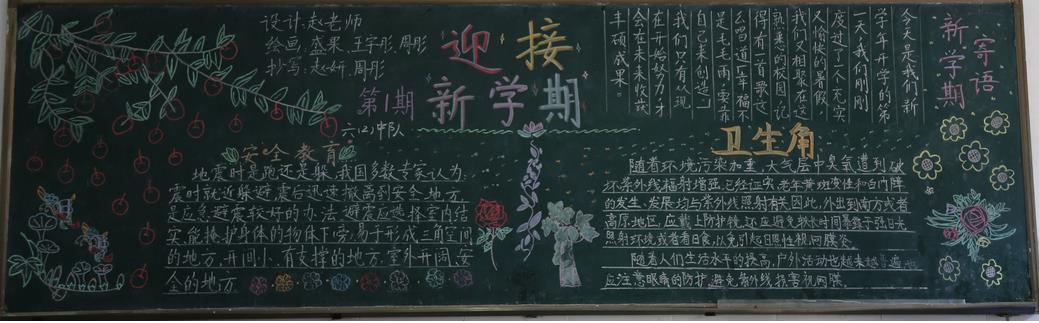 设计:赵老师
绘画:盛果、王宇彤、周彤
抄写:赵妍、周彤
迎接
新学期
第1期
六(2)中队
新学期
寄语
今天是我们新
学年开学的第
一天,我们刚刚
度过了一个充实
又愉快的暑假,
我们又相聚在这
熟悉的校园。记
得有一首歌这
么唱道:“幸福不
是毛毛雨,要靠
自己来创造。”
我们只有从现
在开始努力,才
会在未来收获
丰硕成果。
安全教育
地震时是跑还是躲,我国多数专家认为:
震时就近躲避,震后迅速撤离到安全地方,
是应急避震较好的办法。避震应选择室内结
实、能掩护身体的物体下旁,易于形成三角空间
的地方,开间小、有支撑的地方,室外开阔、安
全的地方
卫生角
随着环境污染加重,大气层中臭氧遭到破
坏,紫外线辐射增强。已经证实,老年黄斑变性和白内障
的发生、发展均与紫外线照射有关。因此,外出到南方或者
高原地区,应戴上防护镜,还应避免较长时间暴露于强日光
照射环境或者看日食,以免引起日照性视网膜炎。
随着人们生活水平的提高,户外活动也越来越
应注意眼睛的防护,避免紫外线损害视网膜。